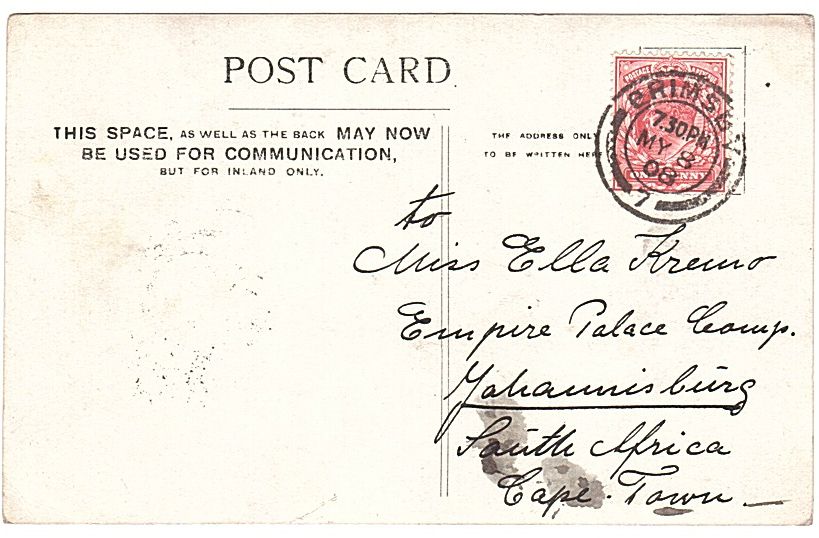 POST CARD
THIS SPACE, AS WELL AS THE BACK MAY NOW
BE USED FOR COMMUNICATION,
BUT FOR INLAND ONLY.
THE ADDRESS ONLY
TO BE WRITTEN HERE
POSTAGE
ONE PENNY
GRIMSBY
7.30PM
MY 8
08
7
to
Miss Ella Kremo
Empire Palace Comp.
Johannisburg
South Africa
Cape-Town